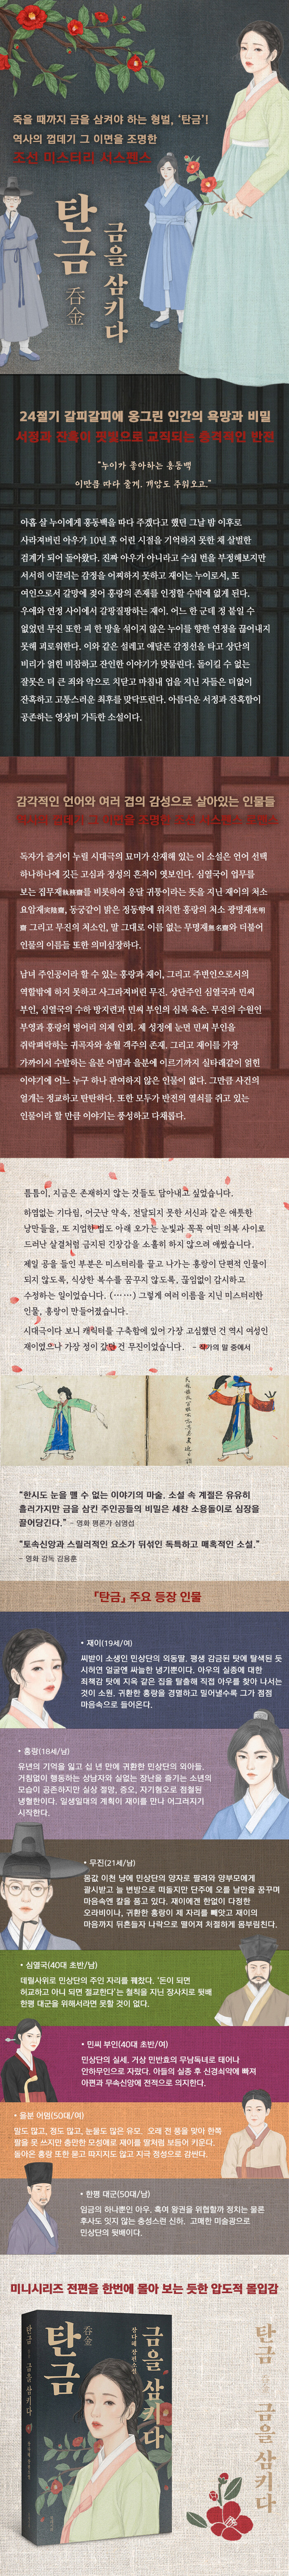 죽을 때까지 금을 삼켜야 하는 형벌, ‘탄금’!
역사의 껍데기 그 이면을 조명한
조선 미스터리 서스펜스
탄금
呑金
금을 삼키다
24절기 갈피갈피에 웅크린 인간의 욕망과 비밀
서정과 잔혹이 핏빛으로 교직되는 충격적인 반전
“누이가 좋아하는 홍동백
이만큼 따다 줄게. 개암도 주워오고.”
아홉 살 누이에게 홍동백을 따다 주겠다고 했던 그날 밤 이후로
사라져버린 아우가 10년 후 어린 시절을 기억하지 못한 채 살벌한
검계가 되어 돌아왔다. 진짜 아우가 아니라고 수십 번을 부정해보지만
서서히 이끌리는 감정을 어찌하지 못하고 재이는 누이로서, 또
여인으로서 갈망에 젖어 홍랑의 존재를 인정할 수밖에 없게 된다.
우애와 연정 사이에서 갈팡질팡하는 재이, 어느 한 군데 정 붙일 수
없었던 무진 또한 피 한 방울 섞이지 않은 누이를 향한 연정을 끊어내지
못해 괴로워한다. 이와 같은 설레고 애달픈 감정선을 타고 상단의
비리가 얽힌 비참하고 잔인한 이야기가 맞물린다. 돌이킬 수 없는
잘못은 더 큰 죄와 악으로 치닫고 마침내 업을 지닌 자들은 더없이
잔혹하고 고통스러운 최후를 맞닥뜨린다. 아름다운 서정과 잔혹함이
공존하는 영상미 가득한 소설이다.
감각적인 언어와 여러 겹의 감성으로 살아있는 인물들
독자가 즐기이 누릴 시대극의 묘미가 산재해 있는 이 소설은 언어 선택
하나하나에 깃든 고심과 정성의 흔적이 엿보인다. 심열국이 업무를
보는 집무재執務齋를 비롯하여 응달 귀퉁이라는 뜻을 지닌 재이의 처소
요암재突陰齋, 둥굿같이 밝은 정동향에 위치한 홍랑의 처소 광명재光明
齋 그리고 무진의 처소인, 말 그대로 이름 없는 무명재無名齋와 더불어
인물의 이름들 또한 의미심장하다.
남녀 주인공이라 할 수 있는 홍랑과 재이, 그리고 주변인으로서의
역할밖에 하지 못하고 사그라져버린 무진. 상단주인 심열국과 민씨
부인, 심열국의 수하 방지련과 민씨 부인의 심복 육손. 무진의 수원인
부영과 홍랑의 벙어리 의제 인회. 제 성정에 눈먼 민씨 부인을
쥐락펴락하는 귀곡자와 송월 객주의 존재, 그리고 재이를 가장
가까이서 수발하는 을분 어멈과 을분에 이르기까지 실타래같이 얽힌
이야기에 어느 누구 하나 관여하지 않은 인물이 없다. 그만큼 사건의
얼개는 정교하고 탄탄하다. 또한 모두가 반전의 열쇠를 쥐고 있는
인물이라 할 만큼 이야기는 풍성하고 다채롭다.
틈틈이, 지금은 존재하지 않는 것들도 담아내고 싶었습니다.
하염없는 기다림, 어긋난 약속, 전달되지 못한 서신과 같은 애틋한
낭만들을, 또 지엄한 법도 아래 오가는 눈빛과 꼭꼭 여민 의복 사이로
드러난 살결처럼 금지된 긴장감을 소홀히 하지 않으려 애썼습니다.
제일 공을 들인 부분은 미스터리를 끌고 나가는 홍랑이 단편적 인물이
되지 않도록, 식상한 복수를 꿈꾸지 않도록, 끊임없이 감시하고
수정하는 일이었습니다. (……) 그렇게 여러 이름을 지닌 미스터리한
인물, 홍랑이 만들어졌습니다.
시대극이다 보니 캐릭터를 구축함에 있어 가장 고심했던 건 역시 여성인
재이였으나 가장 정이 갔던 건 무진이었습니다. - 작가의 말 중에서
“한시도 눈을 뗄 수 없는 이야기의 마술. 소설 속 계절은 유유히
흘러가지만 금을 삼킨 주인공들의 비밀은 세찬 소용돌이로 심장을
끌어당긴다.” - 영화 평론가 심영섭
“토속신앙과 스릴러적인 요소가 뒤섞인 독특하고 매혹적인 소설.”
- 영화 감독 김용훈
『탄금』 주요 등장 인물
• 재이(19세/여)
씨받이 소생인 민상단의 외동딸. 평생 감금된 탓에 탈색된 듯
시허연 얼굴엔 싸늘한 냉기뿐이다. 아우의 실종에 대한
죄책감 탓에 지옥 같은 집을 탈출해 직접 아우를 찾아 나서는
것이 소원. 귀환한 홍랑을 경멸하고 밀어낼수록 그가 점점
마음속으로 들어온다.
• 홍랑(18세/남)
유년의 기억을 잃고 십 년 만에 귀환한 민상단의 외아들.
거침없이 행동하는 상남자와 실없는 장난을 즐기는 소년의
모습이 공존하지만 실상 절망, 증오, 자기혐오로 점철된
냉혈한이다. 일생일대의 계획이 재이를 만나 어그러지기
시작한다.
• 무진(21세/남)
몸값 이천 냥에 민상단의 양자로 팔려와 양부모에게
괄시받고 늘 변방으로 떠돌지만 단주에 오를 날만을 꿈꾸며
마음속엔 칼을 품고 있다. 재이에겐 한없이 다정한
오라비이나, 귀환한 홍랑이 제 자리를 빼앗고 재이의
마음까지 뒤흔들자 나락으로 떨어져 처절하게 몸부림친다.
• 심열국(40대 초반/남)
데릴사위로 민상단의 주인 자리를 꿰찼다. ‘돈이 되면
허교하고 아니 되면 절교한다’는 철칙을 지닌 장사치로 뒷배
한평 대군을 위해서라면 못할 것이 없다.
• 민씨 부인(40대 초반/여)
민상단의 실세. 거상 민반효의 무남독녀로 태어나
안하무인으로 자랐다. 아들의 실종 후 신경쇠약에 빠져
아편과 무속신앙에 전적으로 의지한다.
• 을분 어멈(50대/여)
말도 많고, 정도 많고, 눈물도 많은 유모. 오래 전 풍을 맞아 한쪽
팔을 못 쓰지만 충만한 모성애로 재이를 딸처럼 보듬어 키운다.
돌아온 홍랑 또한 묻고 따지지도 않고 지극 정성으로 감싼다.
• 한평 대군(50대/남)
임금의 하나뿐인 아우. 혹여 왕권을 위협할까 정치는 물론
후사도 잇지 않는 충성스런 신하. 고매한 미술광으로
민상단의 뒷배이다.
미니시리즈 전편을 한번에 몰아 보는 듯한 압도적 몰입감
탄금
呑金
금을 삼키다
장다혜 장편소설
탄금
금을 삼키다